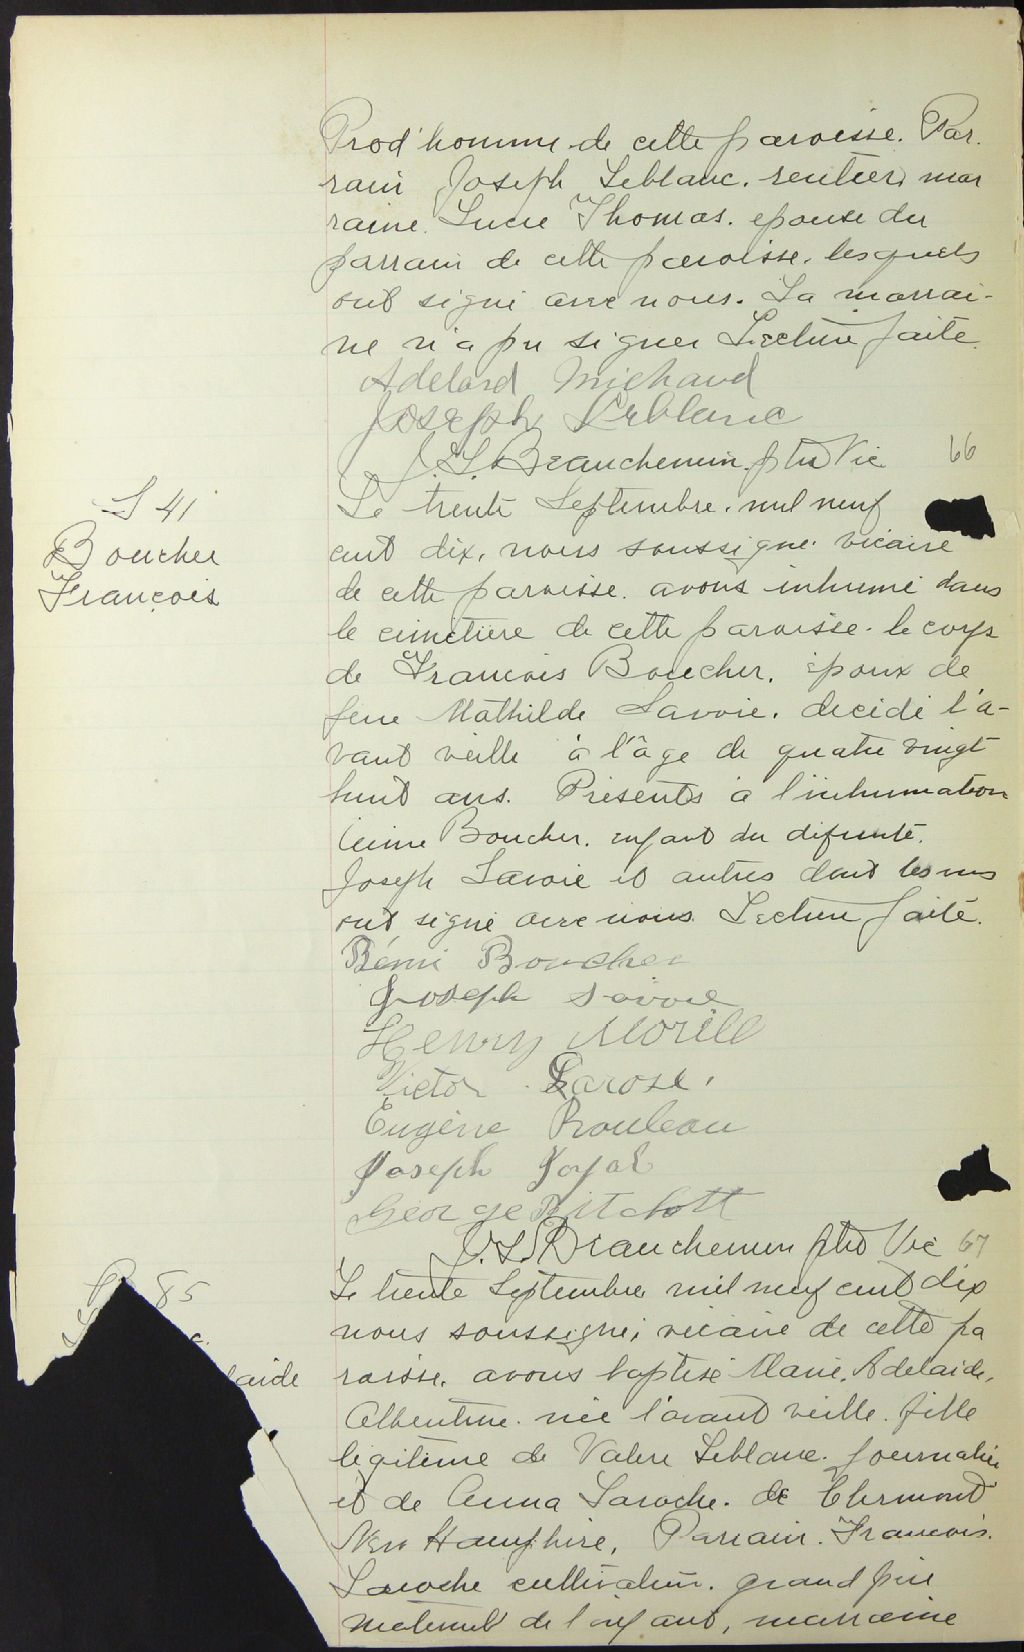 Prod'homme de cette paroisse. Par-
rain Joseph Leblanc. rentier, mar
raine. Lucie Thomas. epouse du
parrain de cette paroisse. lesquels
ont signé avec nous. La marrai-
ne n'a pu signer Lecture faite.
Adelard Michaud
Joseph Leblanc
J. L. Beauchemin. ptre Vic 66
S 41
Boucher
François
Le trente Septembre. mil neuf
cent dix, nous soussigné. vicaire
de cette paroisse. avons inhumé dans
le cimetière de cette paroisse. le corps
de Francois Boucher. époux de
feue Mathilde Savoie. decidé l'a-
vant veille à l'âge de quatre vingt
huit ans. Présents à l'inhumation
Boucher. enfant du difunté.
Joseph Savoie et autres dont les uns
ont signé avec nous. Lecture faite.
Rémi Boucher
Joseph Savoie
Henry Morill
Victor Larose.
Eugène Rouleau
Joseph Joyal
George Pitchott
J. L. Beauchemin ptre Vic 67
B 85
laide
Le trente Septembre mil neuf cent dix
nous soussigné, vicaire de cette pa
roisse. avons baptisé Marie. Adelaide.
Albertine. née l'avant veille. fille
légitime de Valere Leblanc. journalier
et de Anna Laroche. de Clermont
New Hamphire, Parrain. Francois.
Laroche cultivateur. grand père
maternel de l'enfant, marraine